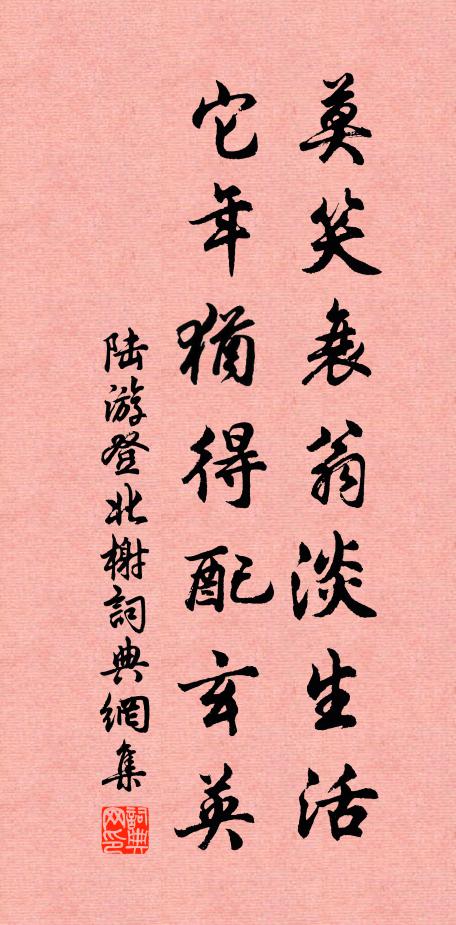 莫笑衰翁淡生活
它年猶得配玄英
陆游登北榭詞典網集
詞典网印